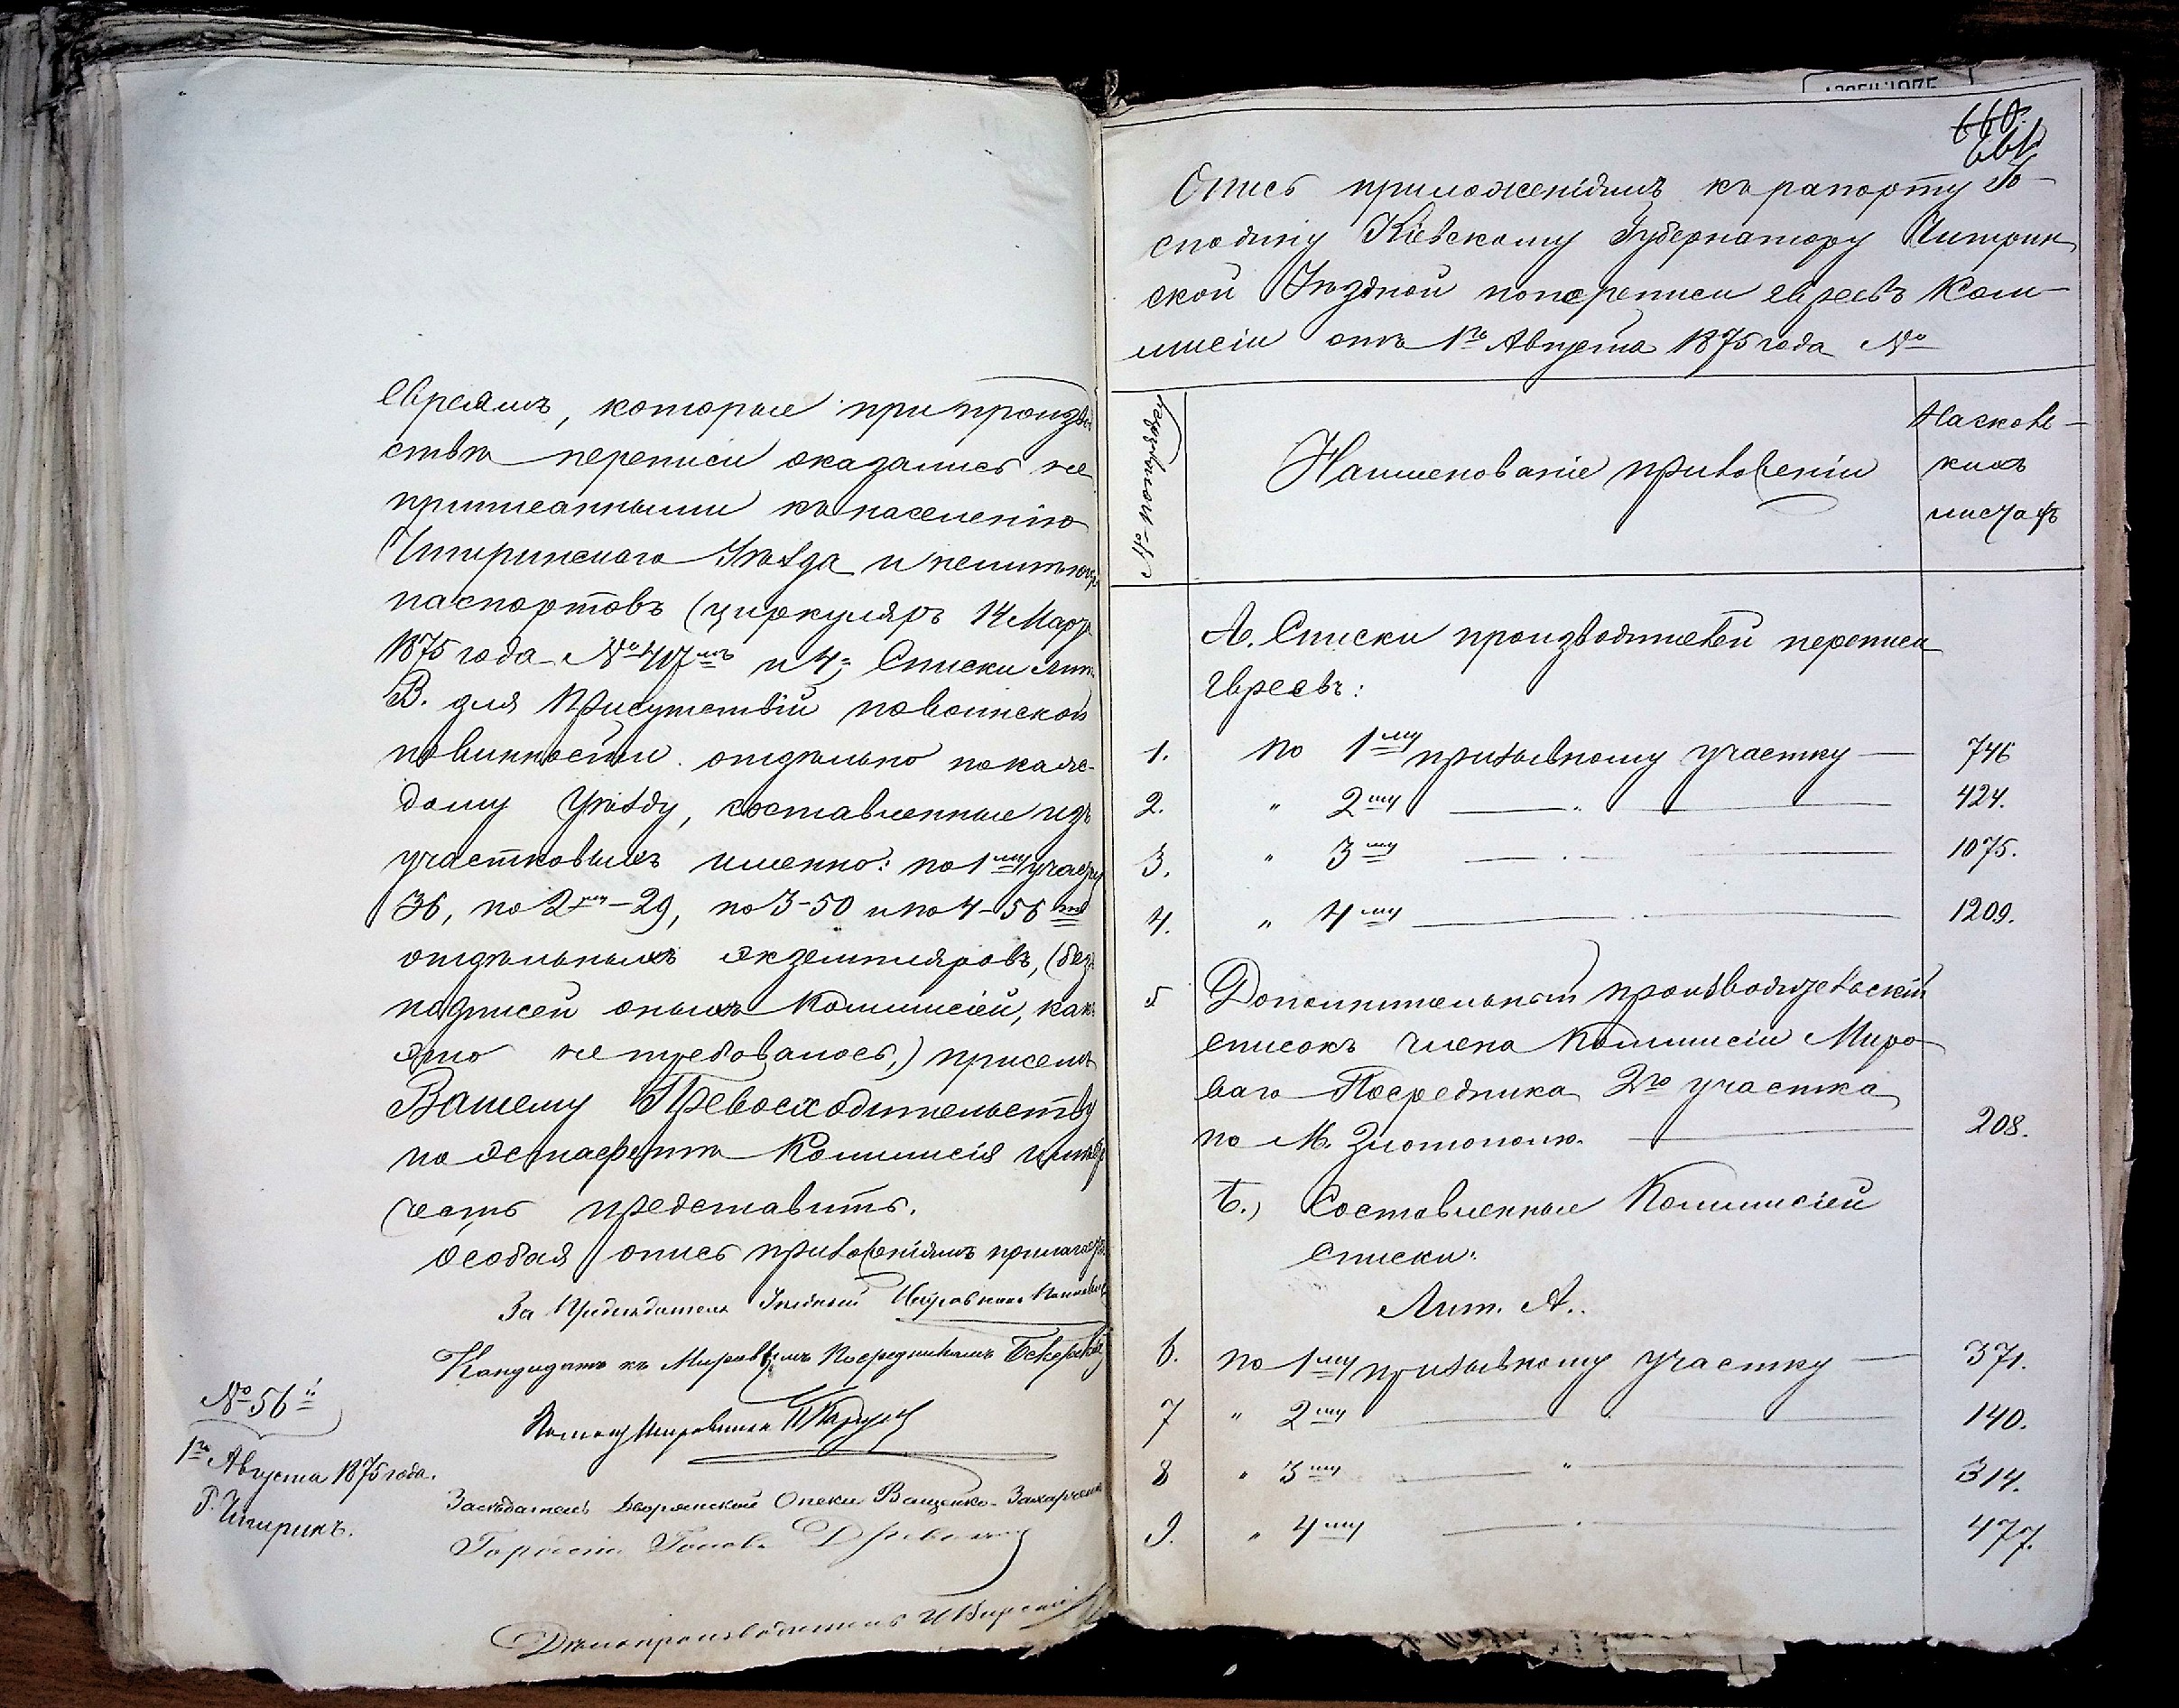 евреямъ, которые при производ
ствѣ переписи оказались не
приписанными къ населенію
Чигиринскаго Уѣзда и неимѣющ
паспортовъ (циркуляръ 14 Мар
1875 года № и 4, Списки лит.
В. для Присутствій по воинской
повинности отдѣльно по каж-
дому Уѣзду, составленные изъ
участковыхъ именно: по 1му участ
36, по 2му – 29, по 3 – 50 и по 4 – 56
отдѣльныхъ экземпляровъ, (безъ
подписей оныхъ Коммисіей, какъ
это не требовалось,) при семъ
Вашему Превосходительству
по эстафетѣ Коммисія имѣе
честь представить.
Особая опись приложеніямъ прилагае
За Предсѣдателя Уѣздный Исправникъ
Кандидатъ къ Мировымъ Посредникамъ
Помощ Исправника
Засѣдатель Дворянской Опеки Ващенко-Захарченко
Городской Голова
Дѣлопроизводитель
№ 56й
1го Августа 1875 года.
Г. Чигиринъ.
660.
661
Опись приложеніямъ къ рапорту Го-
сподину Кіевскому Губернатору Чигирин
ской Уѣздной по переписи евреевъ Ком-
мисіи отъ 1го Августа 1875 года №
№ по порядку
Наименованіе приложеній
На сколь-
кихъ
листахъ
А. Списки производителей переписи
Евреевъ:
1. по 1му призывному участку — 746
2. " 2му — " — 424.
3. " 3му — " — 1075.
4. " 4му — " — 1209.
5 Дополнительный производительскій
списокъ члена Коммисіи Миро-
ваго Посредника 2го участка
по М. Златополю. — 208.
Б.) Составленные Коммисіей
списки:
Лит. А.
6. по 1му призывному участку — 371.
7 " 2му — " — 140.
8 " 3му — " — 314.
9. " 4му — " — 477.